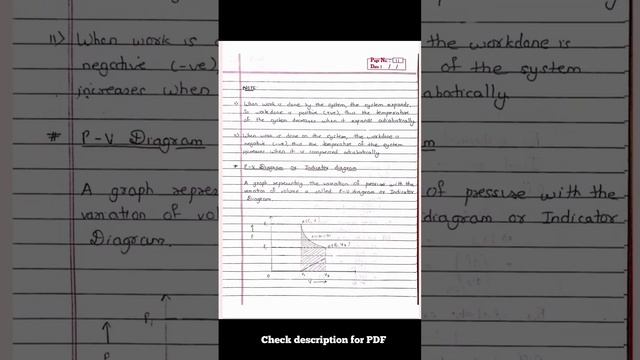 Page No. 11
Date: / /
NOTE
i) When work is done by the system, the system expands.
So workdone is positive (+ve), thus the temperature
of the system decreases when it expands adiabatically.
ii) When work is done on the system, the workdone is
negative (-ve), thus the temperature of the system
increases when it is compressed adiabatically
* P-V Diagram or Indicator diagram
A graph representing the variation of pressure with the
variation of volume is called P-V diagram or Indicator
Diagram.
P
O
V
Check description for PDF
11) When work is
negative (-ve),
increases when
# P-V Diagram
A graph repres
variation of vo
Diagram.
P1
P
the workdone is
of the system
abatically
m
of pressive with the
diagram or Indicator